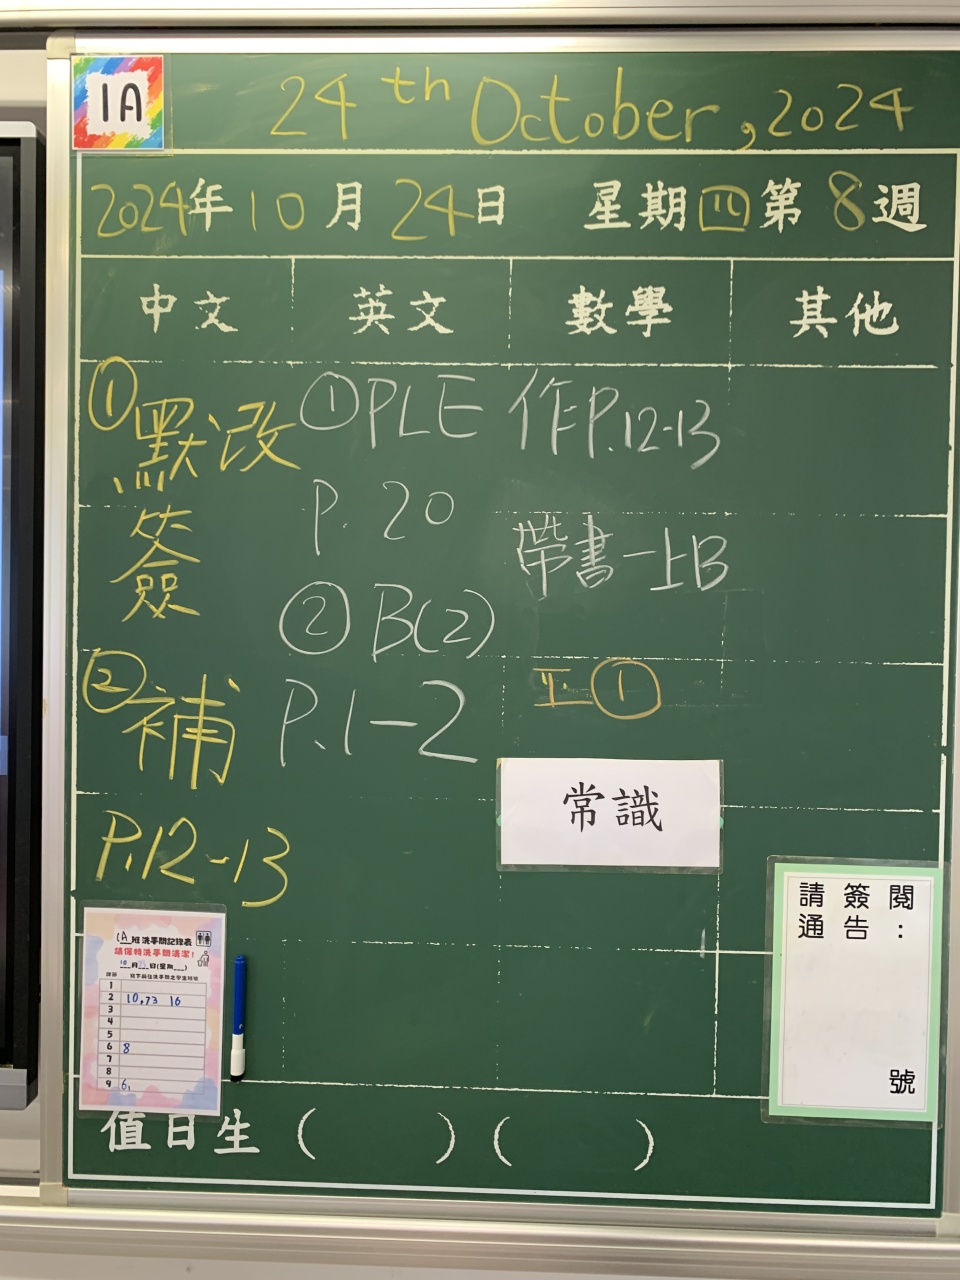 1A
24th October, 2024
2024年10月24日 星期四第8週
中文 英文 數學 其他
①默改
簽
②補
P.12-13
①PLE
P. 20
②B(2)
P.1-2
作P.12-13
帶書一上B
工①
常識
請簽閱
通告:
號
1A班洗手間記錄表
請保持洗手間清潔!
10月23日(星期 )
1
2 10,23 16
3
4
5
6 8
7
8
9 6,
值日生 ( ) ( )